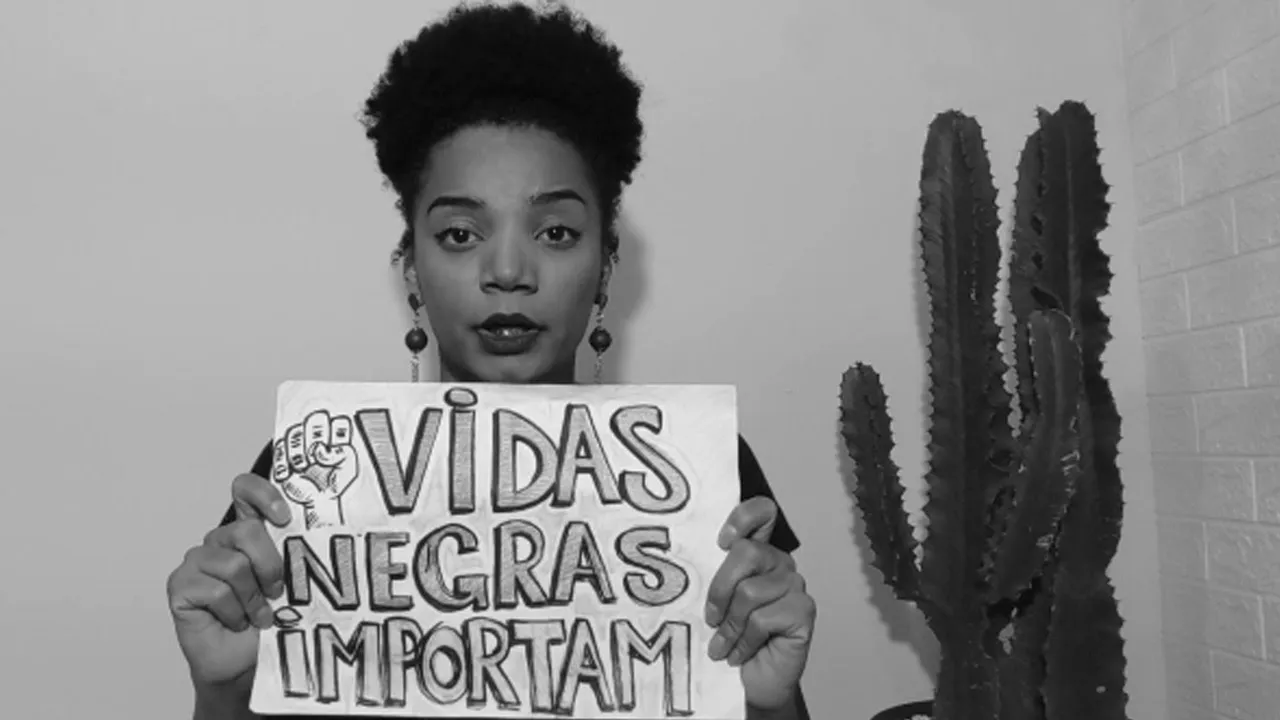 ViDAS
NEGRAS
iMPORTAM